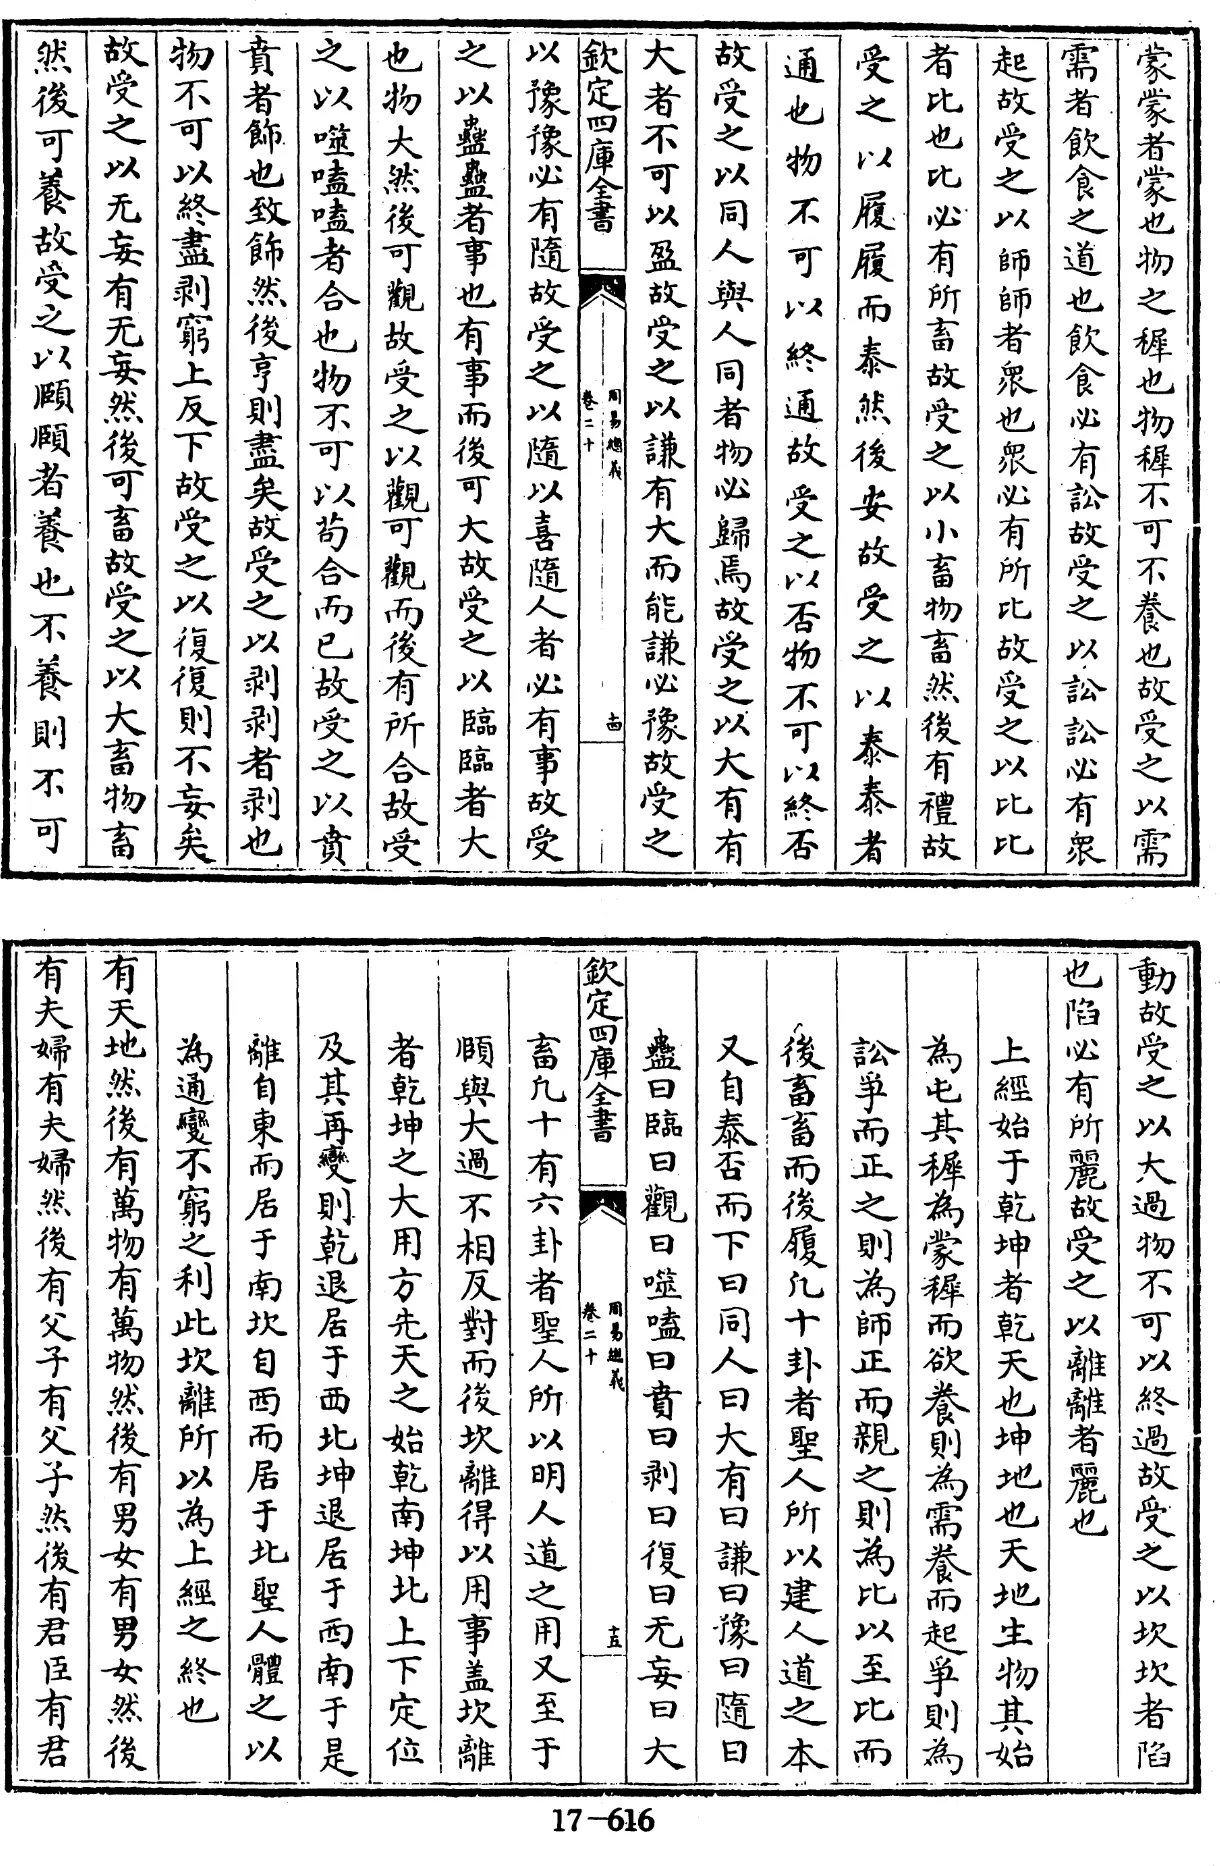 蒙蒙者蒙也物之穉也物穉不可不養也故受之以需
需者飲食之道也飲食必有訟故受之以訟訟必有衆
起故受之以師師者衆也衆必有所比故受之以比比
者比也比必有所畜故受之以小畜物畜然後有禮故
受之以履履而泰然後安故受之以泰泰者
通也物不可以終通故受之以否物不可以終否
故受之以同人與人同者物必歸焉故受之以大有有
大者不可以盈故受之以謙有大而能謙必豫故受之
欽定四庫全書
周易總義
卷二十
十四
以豫豫必有隨故受之以隨以喜隨人者必有事故受
之以蠱蠱者事也有事而後可大故受之以臨臨者大
也物大然後可觀故受之以觀可觀而後有所合故受
之以噬嗑嗑者合也物不可以苟合而已故受之以賁
賁者飾也致飾然後亨則盡矣故受之以剥剥者剥也
物不可以終盡剥窮上反下故受之以復復則不妄矣
故受之以无妄有无妄然後可畜故受之以大畜物畜
然後可養故受之以頤頤者養也不養則不可
動故受之以大過物不可以終過故受之以坎坎者陷
也陷必有所麗故受之以離離者麗也
上經始于乾坤者乾天也坤地也天地生物其始
為屯其穉為蒙穉而欲養則為需養而起爭則為
訟爭而正之則為師正而親之則為比以至比而
後畜畜而後履凡十卦者聖人所以建人道之本
又自泰否而下曰同人曰大有曰謙曰豫曰隨曰
蠱曰臨曰觀曰噬嗑曰賁曰剥曰復曰无妄曰大
欽定四庫全書
周易總義
卷二十
十五
畜凡十有六卦者聖人所以明人道之用又至于
頤與大過不相反對而後坎離得以用事盖坎離
者乾坤之大用方先天之始乾南坤北上下定位
及其再變則乾退居于西北坤退居于西南于是
離自東而居于南坎自西而居于北聖人體之以
為通變不窮之利此坎離所以為上經之終也
有天地然後有萬物有萬物然後有男女有男女然後
有夫婦有夫婦然後有父子有父子然後有君臣有君
17-616